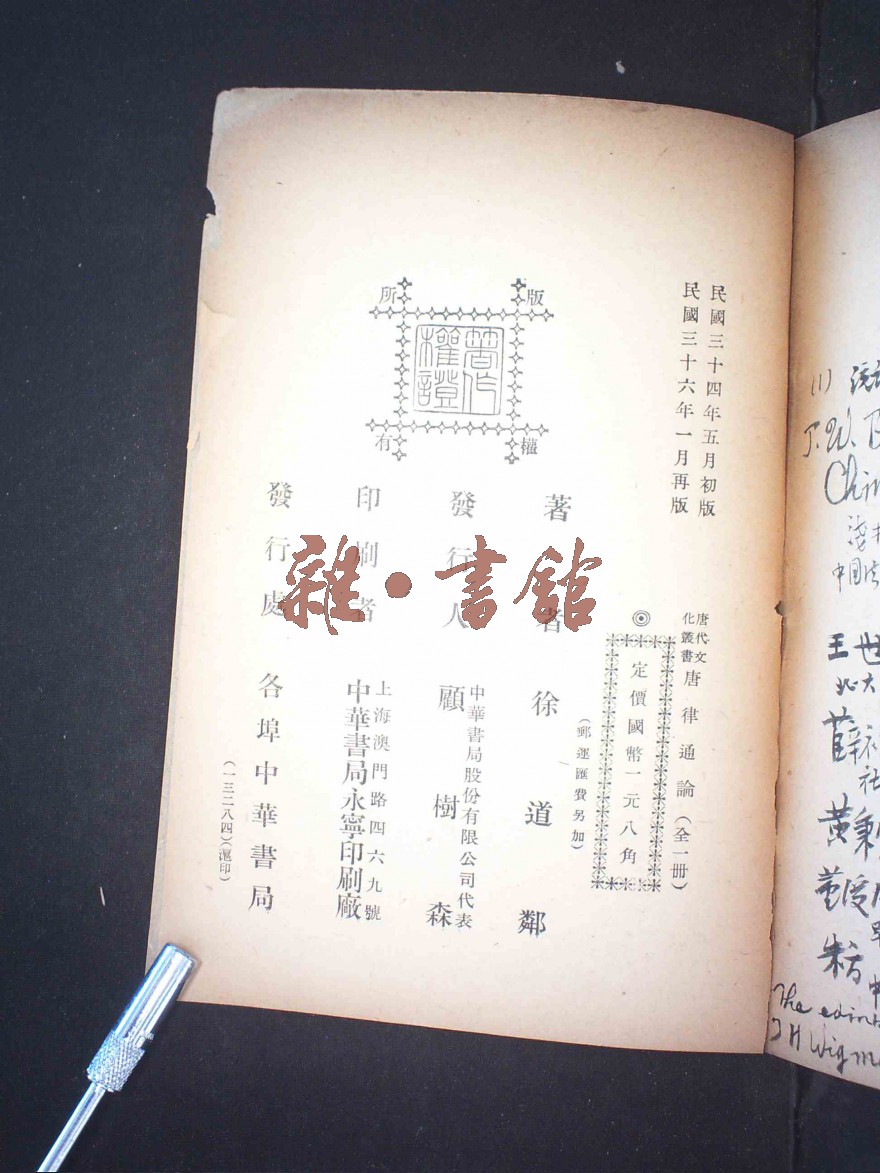 民國三十四年五月初版
民國三十六年一月再版
唐代文化叢書
唐律通論（全一冊）
◎定價國幣一元八角
（郵運匯費另加）
版權所有
著作權證
著者 徐道鄰
發行人 中華書局股份有限公司代表
顧樹森
印刷者 上海澳門路四六九號
中華書局永寧印刷廠
發行處 各埠中華書局
（一三二八四）（滬印）
雜·書館
(1)
王世
北大
黃秉
The